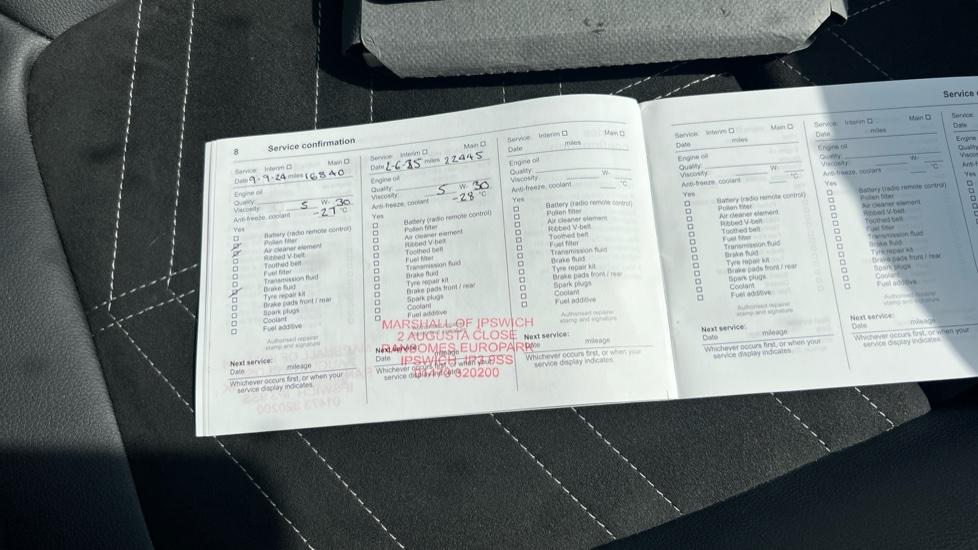 8 Service confirmation
Service: Interim Main
Date 9-9-24 miles 16840
Engine oil
Quality:
Viscosity: 5 W- 30
Anti-freeze, coolant -27 °C
Yes
Battery (radio remote control)
Pollen filter
Air cleaner element
Ribbed V-belt
Toothed belt
Fuel filter
Transmission fluid
Brake fluid
Tyre repair kit
Brake pads front / rear
Spark plugs
Coolant
Fuel additive
Authorised repairer
stamp and signature
Next service:
Date mileage
Whichever occurs first, or when your
service display indicates.
Service: Interim Main
Date miles 22445
Engine oil
Quality:
Viscosity: 5 W- 30
Anti-freeze, coolant -28 °C
Yes
Battery (radio remote control)
Pollen filter
Air cleaner element
Ribbed V-belt
Toothed belt
Fuel filter
Transmission fluid
Brake fluid
Tyre repair kit
Brake pads front / rear
Spark plugs
Coolant
Fuel additive
MARSHALL OF IPSWICH
2 AUGUSTA CLOSE
RANSOMES EUROPARK
IPSWICH IP3 9SS
01473 320200
Next service:
Date mileage
Whichever occurs first, or when your
service display indicates.
Service: Interim Main
Date miles
Engine oil
Quality:
Viscosity: W-
Anti-freeze, coolant °C
Yes
Battery (radio remote control)
Pollen filter
Air cleaner element
Ribbed V-belt
Toothed belt
Fuel filter
Transmission fluid
Brake fluid
Tyre repair kit
Brake pads front / rear
Spark plugs
Coolant
Fuel additive
Authorised repairer
stamp and signature
Next service:
Date mileage
Whichever occurs first, or when your
service display indicates.
Service
Service: Interim Main
Date miles
Engine oil
Quality:
Viscosity: W-
Anti-freeze, coolant °C
Yes
Battery (radio remote control)
Pollen filter
Air cleaner element
Ribbed V-belt
Toothed belt
Fuel filter
Transmission fluid
Brake fluid
Tyre repair kit
Brake pads front / rear
Spark plugs
Coolant
Fuel additive
Authorised repairer
stamp and signature
Next service:
Date mileage
Whichever occurs first, or when your
service display indicates.
Service: Interim Main
Date miles
Engine oil
Quality:
Viscosity: W-
Anti-freeze, coolant °C
Yes
Battery (radio remote control)
Pollen filter
Air cleaner element
Ribbed V-belt
Toothed belt
Fuel filter
Transmission fluid
Brake fluid
Tyre repair kit
Brake pads front / rear
Spark plugs
Coolant
Fuel additive
Authorised repairer
stamp and signature
Next service:
Date mileage
Whichever occurs first, or when your
service display indicates.
Service:
Date
Engine
Quality
Yes